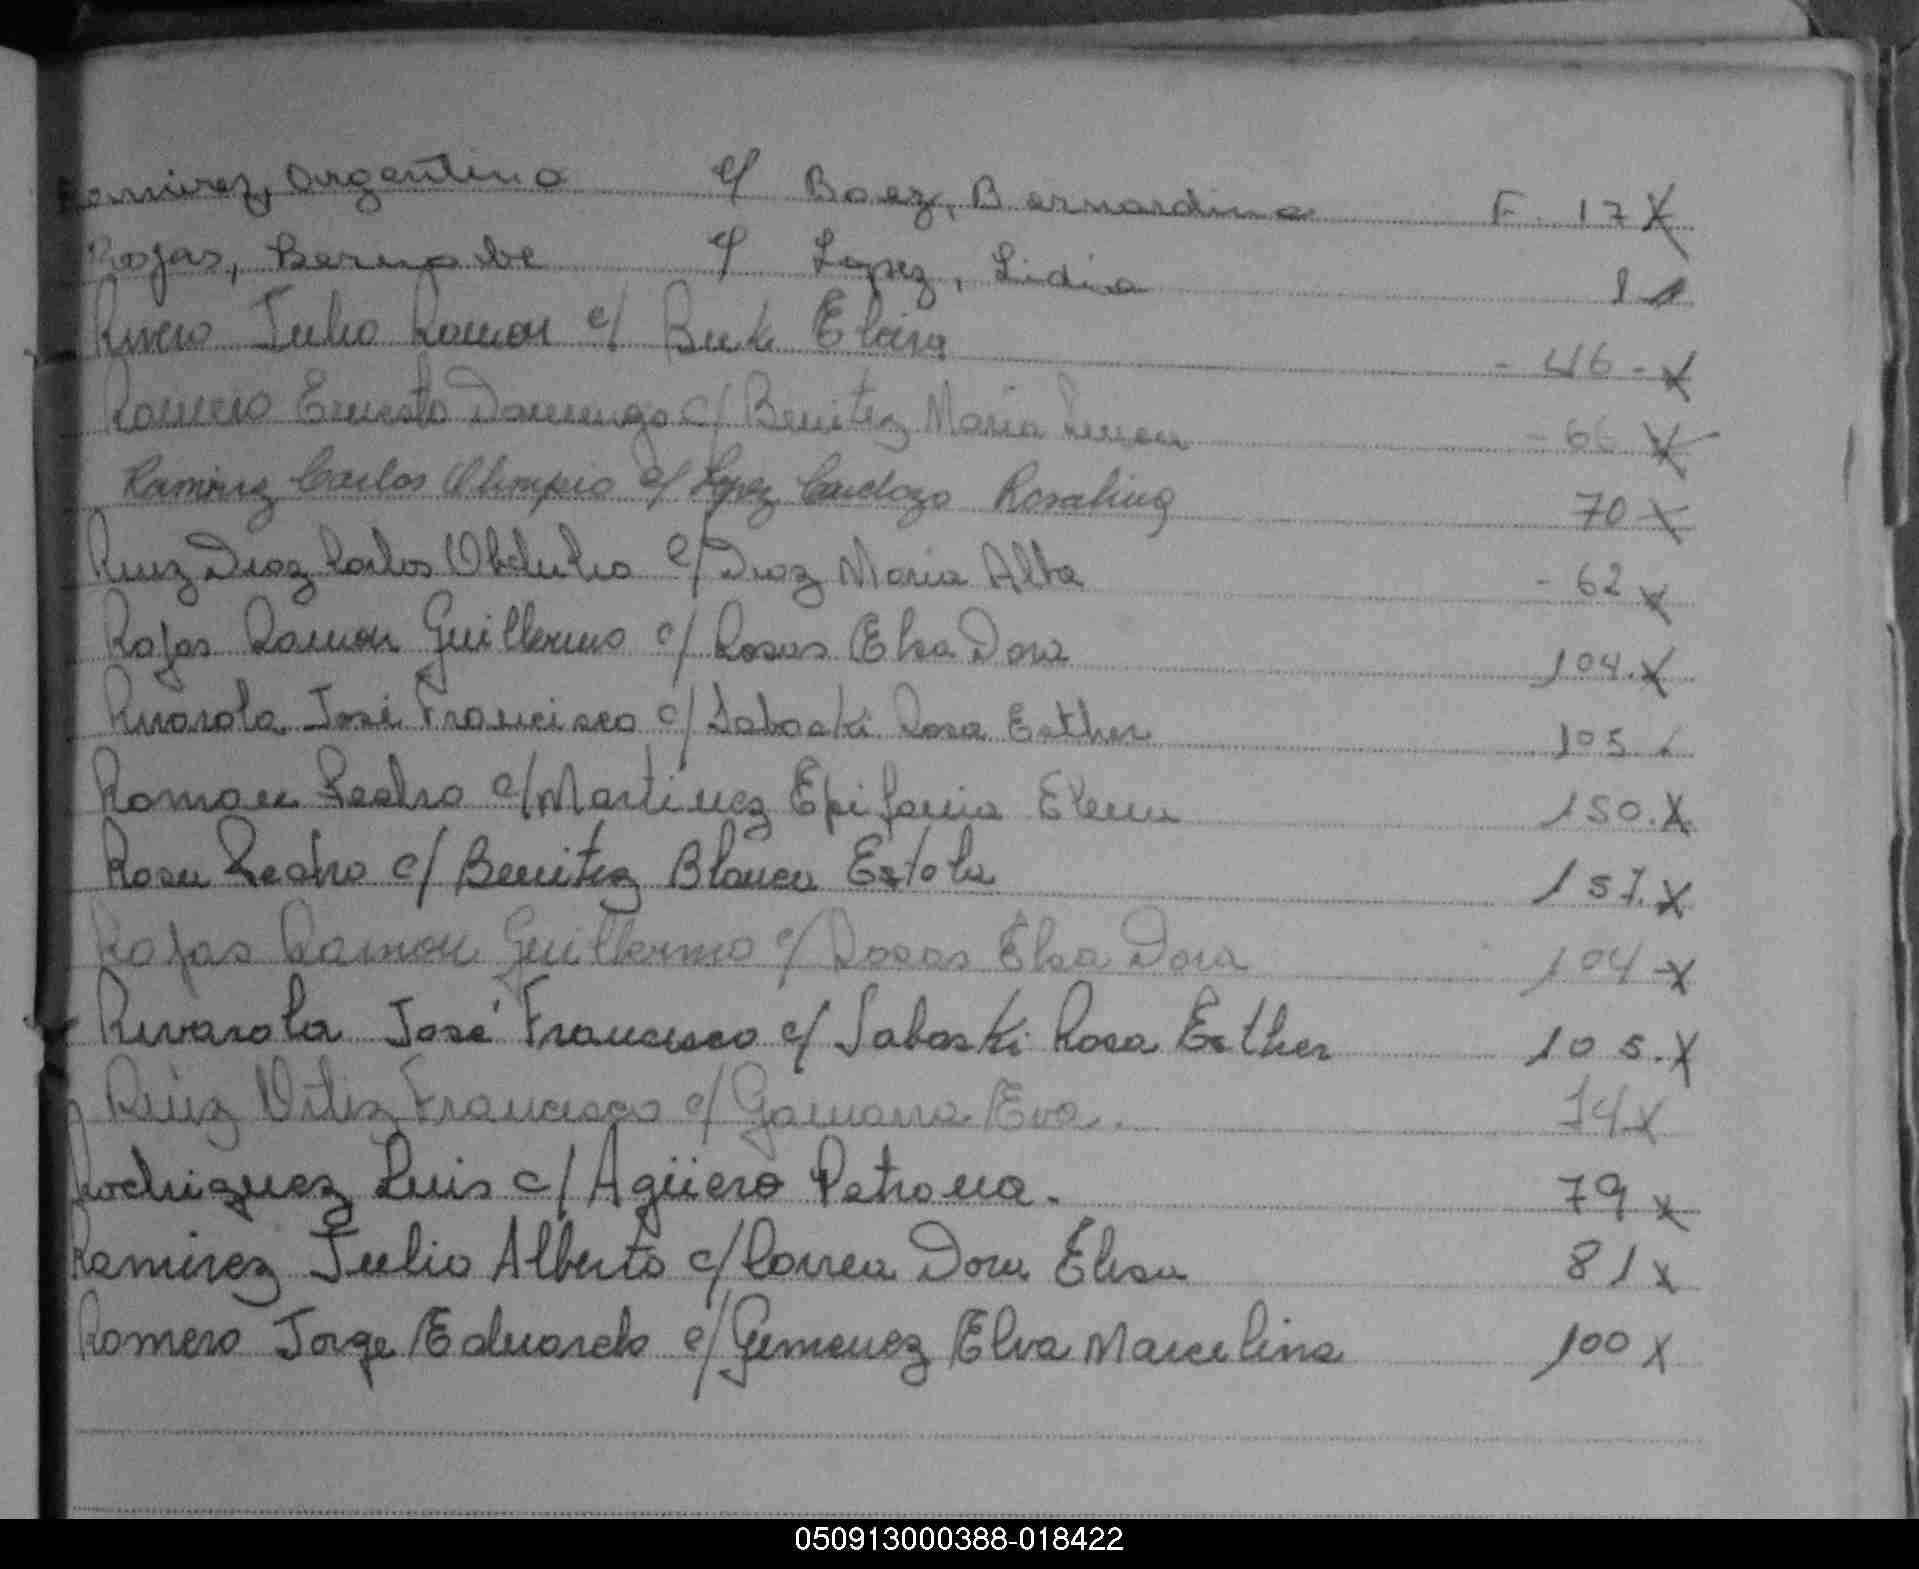 Ramirez, Argentino c/ Baez, Bernardina F. 17 X
Rojas, Bernabe c/ Lopez, Lidia
Rivero Julio Ramon c/ Elvira - 46 - X
Romero Ernesto Domingo c/ Benitez Maria - 66 X
Ramirez Carlos Olimpio c/ Lopez Cardozo Rosalina 70 X
Ruiz Diaz Carlos Obdulio c/ Diaz Maria Alba - 62 X
Rojas Ramon Guillermo c/ Rosas Elsa Dora 104. X
Rivarola José Francisco c/ Saboski Rosa Esther 105
Roman Pedro c/ Martinez Epifania Elena 150. X
Rosa Pedro c/ Benitez Blanca Estela 157. X
Rojas Ramon Guillermo c/ Rosas Elsa Dora 104 - X
Rivarola José Francisco c/ Saboski Rosa Esther 105. X
Ruiz Ortiz Francisco c/ Gamarra Eva. 74 X
Rodriguez Luis c/ Agüero Petrona. 79 X
Ramirez Julio Alberto c/ Correa Dora Elisa 81 X
Romero Jorge Eduardo c/ Gimenez Elva Marcelina 100 X
050913000388-018422